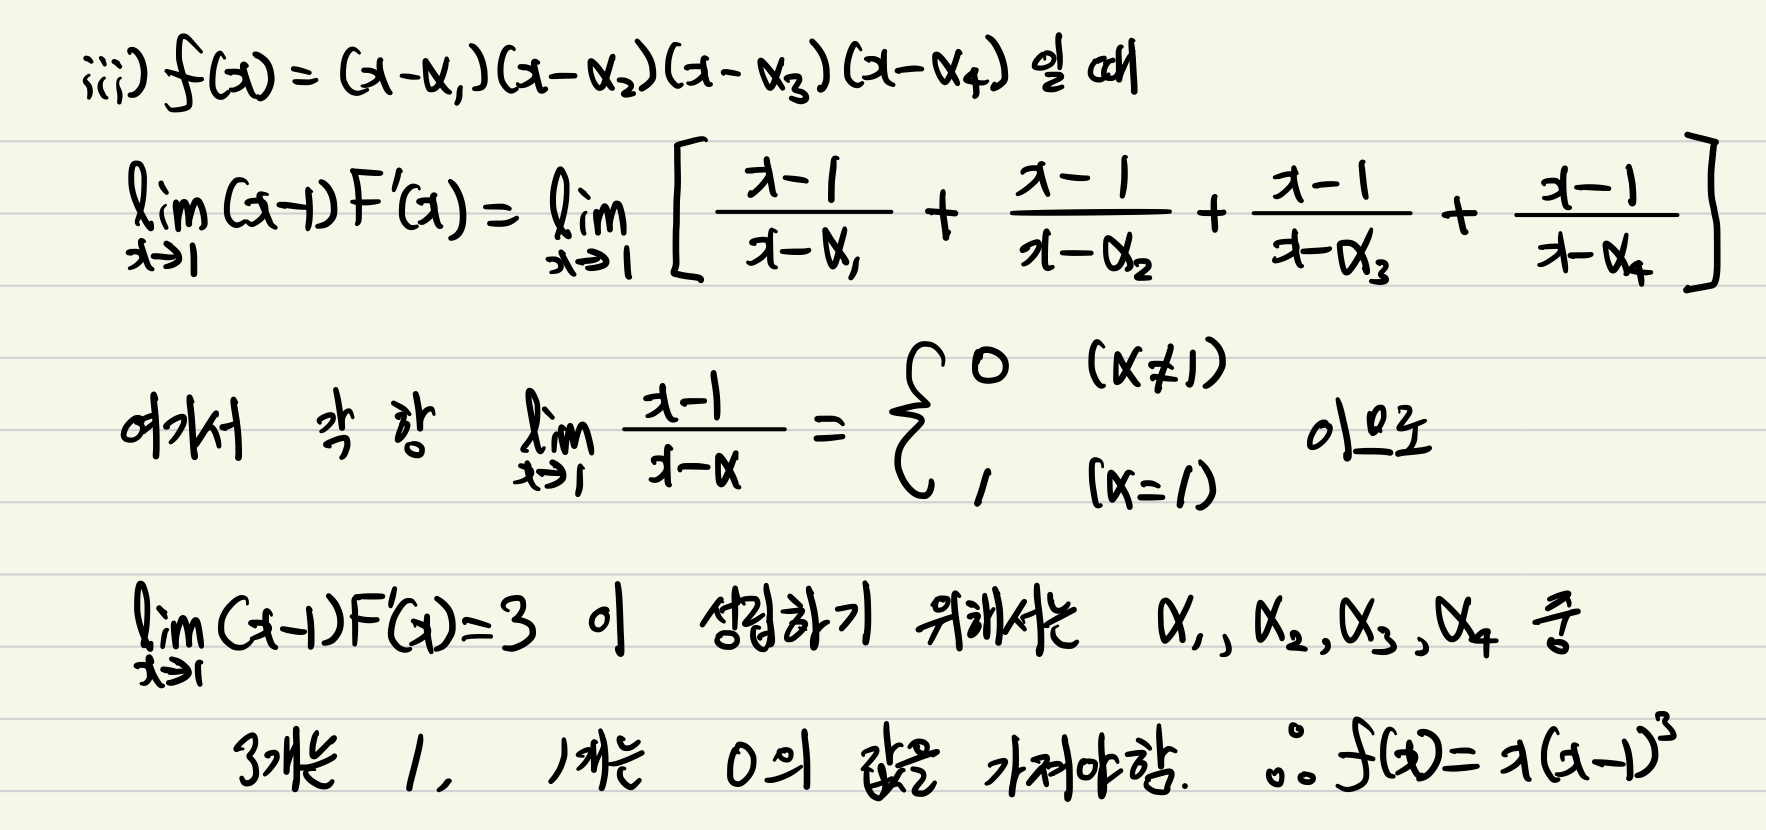 iii) f(x) = (x-α₁)(x-α₂)(x-α₃)(x-α₄) 일 때
lim_{x→1} (x-1)F'(x) = lim_{x→1} [ (x-1)/(x-α₁) + (x-1)/(x-α₂) + (x-1)/(x-α₃) + (x-1)/(x-α₄) ]
여기서 각 항 lim_{x→1} (x-1)/(x-α) = { 0 (α≠1) , 1 (α=1) 이므로
lim_{x→1} (x-1)F'(x)=3 이 성립하기 위해서는 α₁, α₂, α₃, α₄ 중
3개는 1, 1개는 0의 값을 가져야함. ∴ f(x)= x(x-1)³